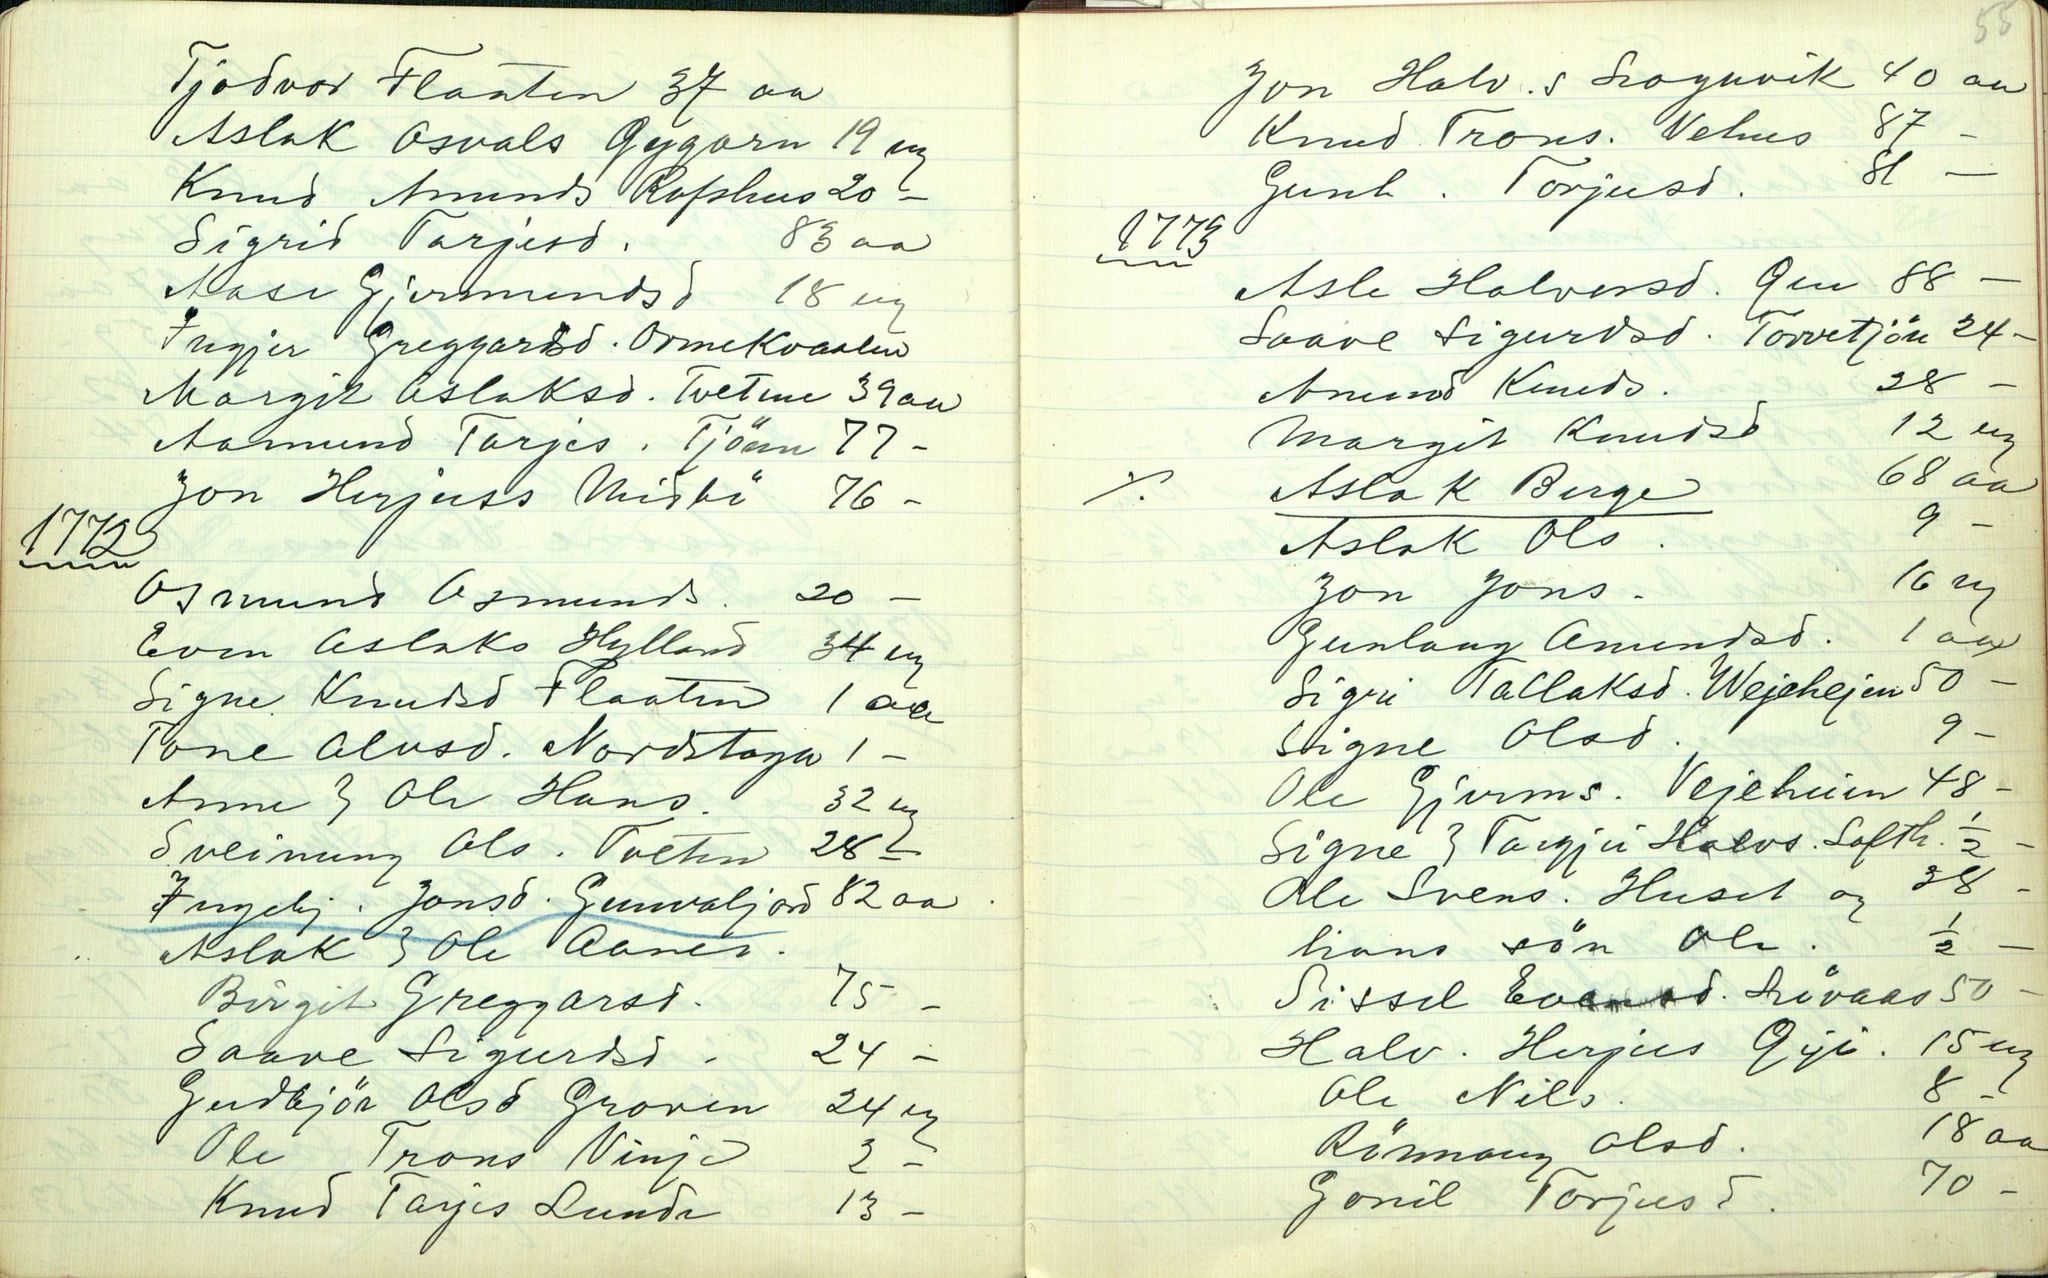 Tjodvor Flaaten 37 aa
Aslak Osvals Gygarn 19 ug
Knud Amunds Rofshus 20 –
Sigrid Tarjesd. 83 aa
Aase Gjermundsd 18 ug
Ingjer Greggarsd. Ormekvaalen
Margit Aslaksd. Tvetene 39 aa
Aamund Tarjes. Tjönn 77 –
Jon Herjuss Midbö 76 –
1772
Osmund Osmunds. 20 –
Even Aslaks Hylland 34 ug
Signe Knudsd Flaaten 1 aa
Tone Olavsd. Nordstoga 1 –
Anne } Ole Hans. 32 ug
Sveinung Ols. Tveten 28 –
Ingebj. Jonsd. Gunvaljord 82 aa
Aslak } Ole Aanes.
Birgit Greggarsd. 75 –
Saave Sigurdsd. 24 –
Gudbjör Olsd Groven 24 ug
Ole Trons Vinje 2 –
Knud Tarjes Lunde 13 –
55
Jon Halv.s 40 aa
Knud Trons. Vehus 87 –
Gunh. Torjusd. 81 –
1773
Asle Halvorsd. 88 –
Saave Sigurdsd. Torvetjön 24 –
Amund Knuds. 28 –
Margit Knudsd 12 ug
%. Aslak Berge 68 aa
Aslak Ols. 9 –
Jon Jons. 16 ug
Gunlaug Amundsd. 1 aa
Sigri Tallaksd. Wejehejen 50 –
Signe Olsd. 9 –
Ole Gjerms. Vejeheien 48 –
Signe } Targjei Halvs. Lofth. ½ –
Ole Svens. Huset og 38 –
hans sön Ole. ½ –
Sissel 50 –
Halv. Herjus 15 ug
Ole Nils. 8 –
Rönnaug Olsd. 18 aa
Gonil Torjusd. 70 –